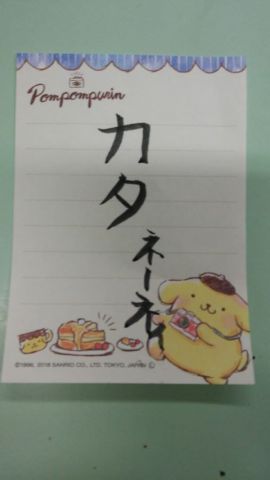 Pompompurin
カタ
ネーネ
©1996, 2018 SANRIO CO., LTD. TOKYO, JAPAN Ⓛ